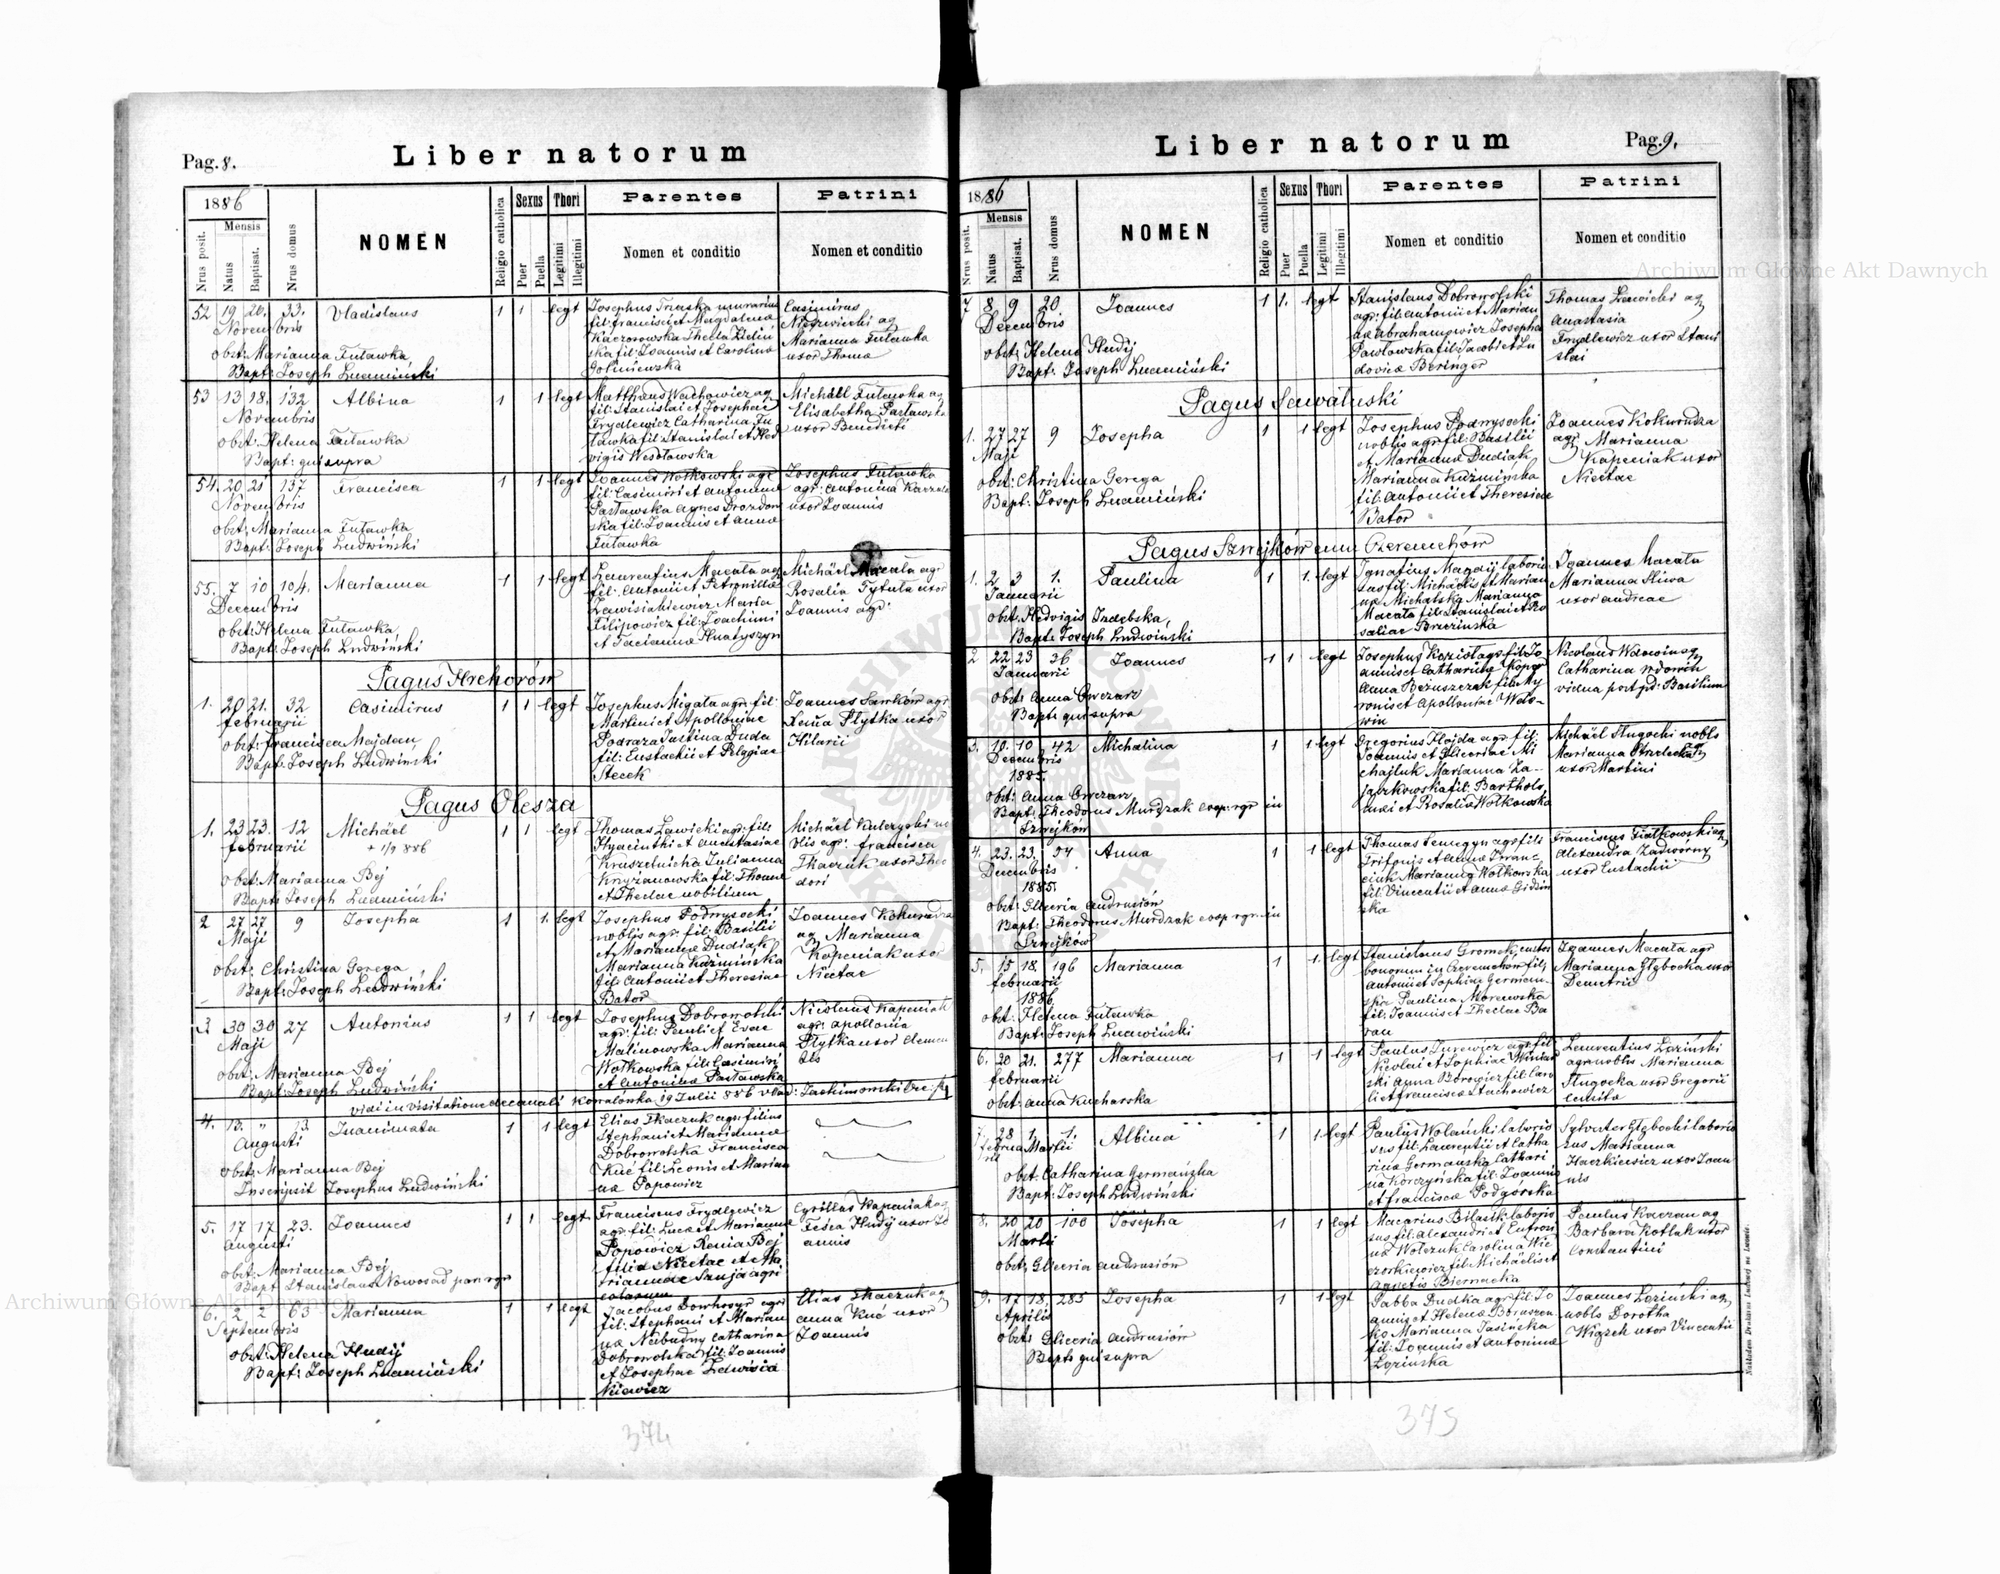 Pag. 8.
Liber natorum
1886
Mensis
Nrus posit.
Natus
Baptisat.
Nrus domus
NOMEN
Religio catholica
Sexus
Puer
Puella
Thori
Legitimi
Illegitimi
Parentes
Nomen et conditio
Patrini
Nomen et conditio
52 19 20. 33. Vladislaus 1 1 legt
Novembris
obst: Marianna Futawka
Bapt: Joseph Ludwiński
Casimirus
Marianna Futawka
uxor Thoma
53 13 18. 132 Albina 1 1 legt
Novembris
obst: Helena Futawka
Bapt: qui supra
Matthaus Wachowicz agr
fil: Stanislai et Josephae
Frydlewicz Catharina Fu
tawka fil Stanislai et Hed
vigis Wesołowska
Michäel Futawka ag
Elisabetha Pasławska
uxor Benedicti
54. 20 21 137 Francisca 1 1 legt
Novembris
obst: Marianna Futawka
Bapt: Joseph Ludwiński
Joannes Wołkowski agr
fil: Casimiri et Antonina
Pasławska Agnes Drozdow
ska fil: Joannis et Anna
Futawka
Josephus Futawka
agr: Antonina
uxor Joannis
55. 7 10 104. Marianna 1 1 legt
Decembris
obst: Helena Futawka
Bapt: Joseph Ludwiński
Laurentius Macała ag
fil: Antonii et Petronillae
Maria
Filipowicz fil: Joachimi
et Tacianna Hnatyszyn
Michäel Macała agr
Rosalia Tytuła uxor
Joannis agr:
Pagus Hrehorów
1. 20 21. 32 Casimirus 1 1 legt
februarii
obst: Francisca Majdan
Bapt: Joseph Ludwiński
Josephus Migała agr: fil:
Martini et Apolloniae
Podraza Justina Duda
fil: Eustachii et Pelagiae
Stecek
Joannes Sarków agr
Xenia Płytka uxor
Hilarii
Pagus Olesza
1. 23 23. 12 Michäel 1 1 legt
februarii + 1/9 886
obst: Marianna Bej
Bapt: Joseph Ludwiński
Thomas Ławicki agr: fil:
Hyacinthi et Anastasiae
Kruszelnicka Julianna
Krzyżanowska fil: Thomae
et Theclae nobilium
Michäel Kulczycki no
bilis agr: Francisca
Tkaczuk uxor Theo
dori
2 27 27 9 Josepha 1 1. legt
Maji
obst: Christina Gerega
Bapt: Joseph Ludwiński
Josephus Podwysocki
nobilis agr: fil: Basilii
et Marianna Dudiak
Marianna Kuźmińska
fil: Antonii et Theresiae
Bator
Joannes Kokurudza
ag Marianna
Kopeniak uxor
Nicetae
3 30 30 27 Antonius 1 1 legt
Maji
obst: Marianna Bej
Bapt: Joseph Ludwiński
Josephus Dobrowolski
agr: fil: Pauli et Evae
Malinowska Marianna
Wołkowska fil: Casimiri
et Antonina Pasławska
Nicolaus Kapeniak
agr: Apollonia
Płytka uxor Clemen
tis
vidi in visitatione decanali Kowalówka 19 Julii 886
4. 13. " 13. Inanimata 1 1 legt
Augusti
obst: Marianna Bej
Inscripsit Josephus Ludwiński
Elias Tkaczuk agr: filius
Stephani et Marianna
Dobrowolska Francisca
Kuć fil: Leonis et Marian
na Popowicz
5. 17 17 23. Joannes 1 1 legt
Augusti
obst: Marianna Bej
Bapt Stanislaus Nowosad
Franciscus Frydlewicz
agr: fil: Lucae et Marianna
Popowicz Xenia Bej
filia Nicetae et Ma
riannae Szuja agri
colarum
Cyrillus Kapeniak ag
Fesia Hudyj uxor Jo
annis
6. 2 2 63 Marianna 1 1 legt
Septembris
obst: Helena Hudij
Bapt: Joseph Ludwiński
Jacobus Dowhosyr agr
fil: Stephani et Marian
na Catharina
Dobrowolska fil: Joannis
et Josephae Zawisia
kiewicz
Elias Tkaczuk ag
Anna Kuć uxor
Joannis
374
Liber natorum
Pag. 9.
1886
Mensis
Nrus posit.
Natus
Baptisat.
Nrus domus
NOMEN
Religio catholica
Sexus
Puer
Puella
Thori
Legitimi
Illegitimi
Parentes
Nomen et conditio
Patrini
Nomen et conditio
7 8 9 20 Joannes 1 1. legt
Decembris
obst: Helena Hudij
Bapt: Joseph Ludwiński
Stanislaus Dobrowolski
agr: fil: Antonii et Marian
na Abrahamowicz Josepha
Pawłowska fil: Jacobi et Lu
dovica Beringer
Thomas Ławicki ag
Anastasia
Frydlewicz uxor Stani
slai
Pagus Sawałuski
1. 27 27 9 Josepha 1 1 legt
Maji
obst: Christina Gerega
Bapt: Joseph Ludwiński
Josephus Podwysocki
nobilis agr: fil: Basilii
et Marianna Dudiak
Marianna Kuźmińska
fil: Antonii et Theresiae
Bator
Joannes Kokurudza
agr Marianna
Kapeniak uxor
Nicetae
Pagus Szwejków cum Czeremchów
1. 2 3 1. Paulina 1 1. legt
Januarii
obst: Hedvigis
Bapt: Joseph Ludwinski
Ignatius Magdij laborio
sus fil: Michäelis et Marian
na Michalska Marianna
Macała fil: Stanislai et Ro
saliae Brzezinska
Joannes Macała
Marianna Sliwa
uxor Andreae
2 22 23 36 Joannes 1 1 legt
Januarii
obst: Anna Owczarz
Bapt: qui supra
Josephus agr: fil: Jo
annis et Catharina
Anna fil: My
ronis et Apolloniae
Nicolaus ag
Catharina
vidua post pd: Basilium
3. 10. 10 42 Michalina 1 1 legt
Decembris
1885.
obst: Anna Owczarz
Bapt: Theodorus Murdzak coop: rgr in
Szwejków
Gregorius Hojda agr: fil:
Joannis et Gliceriae Mi
chajluk Marianna Za-
jączkowska fil: Bartholo
maei et Rosalia Wołkowska
Michäel Sługocki nobls
Marianna
uxor Martini
4. 23. 23. 54 Anna 1 1 legt
Decembris
1885.
obst: Gliceria Andrusiów
Bapt: Theodorus Murdzak coop rgr. in
Szwejków
Thomas agr: fil:
Trifonis et Anna
Marianna Wołkowska
fil: Vincentii et Anna
ska
Franciscus Fiałkowski ag
Alexandra Zadworny
uxor Eustachii
5. 15 18. 196 Marianna 1 1. legt
februarii
1886.
obst: Helena Futawka
Bapt: Joseph Ludwiński
Stanislaus Gromek, custos
bonorum in Czeremchów fil:
Antonii et Sophiae German-
ska Paulina Morawska
fil: Joannis et Theclae Ba
ran
Joannes Macała agr
Marianna Głębocka uxor
Demetrii
6. 20 21. 277 Marianna 1 1 legt
februarii
obst: Anna Kucharska
Paulus Jurewicz agr: fil
Nicolai et Sophiae Winiar
ski Anna Borowicz fil: Caro
li et Francisca Stachowicz
Laurentius Łoziński
agr: nobilis Marianna
Sługocka uxor Gregorii
7. 28 1. 1. Albina 1 1. legt
februarii Martii
obst: Catharina Germańska
Bapt: Joseph Ludwiński
Paulus Wolański laborio
sus fil: Laurentii et Catha
rina Germanska Cathari
na Korczyńska fil: Joannis
et Francisca Podgórska
Sylvester Głębocki laborio
sus Marianna
Haczkiewicz uxor Joan
nis
8. 20 20 100 Josepha 1 1 legt
Martii
obst: Gliceria Andrusiów
Macarius Bilasik laborio
sus fil: Alexandri et Eufrosi
na Wolczuk Carolina Wie
czorkiewicz fil: Michäelis et
Agnetis Biernacka
Paulus Kaczan ag
Barbara Kotlak uxor
Constantini
9. 17 18. 285 Josepha 1 1. legt
Aprilis
obst: Gliceria Andrusiów
Bapt: qui supra
Sabba Dudka agr: fil: Jo
annis et Helena
Marianna Jasińska
fil: Joannis et Antonina
Łozinska
Joannes Łoziński ag
nobls Dorothea
uxor Vincentii
Nakładem Drukarni Ludowej we Lwowie.
375
Archiwum Główne Akt Dawnych
Archiwum Główne Akt Dawnych
ARCHIWUM GŁÓWNE AKT DAWNYCH